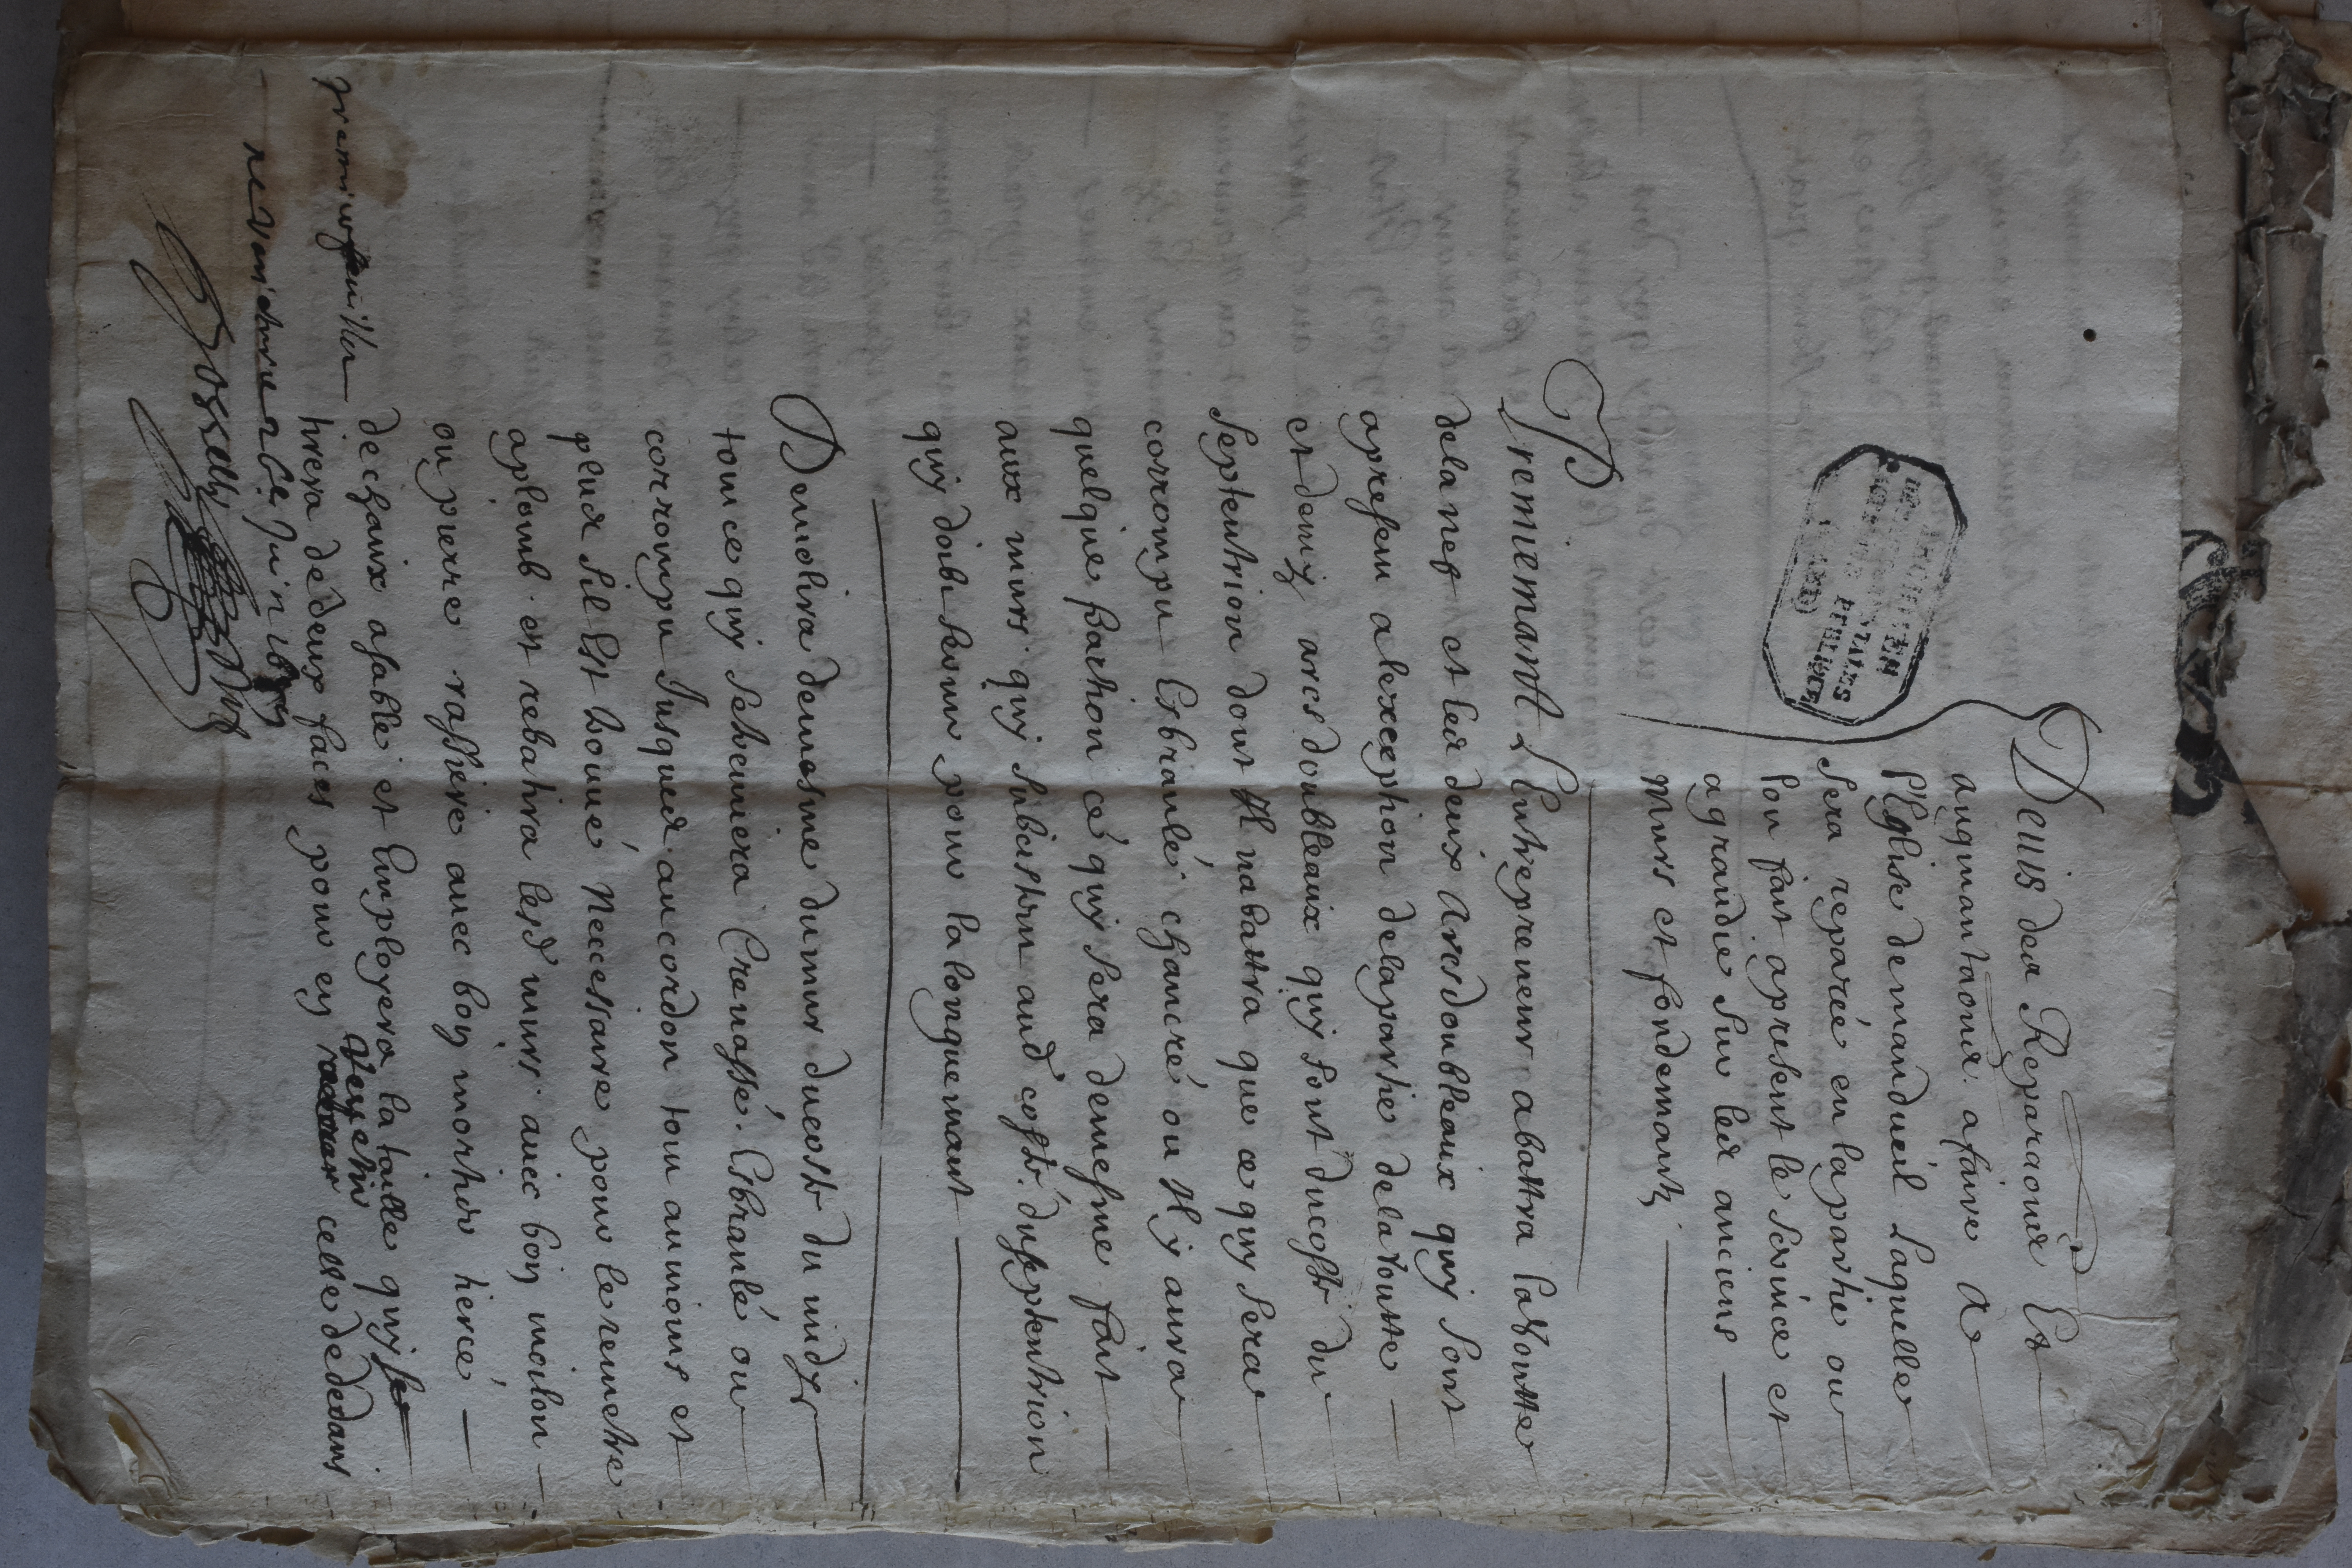 Deuis des Reparaons Et
augmantaons a faire A
l'Eglise de manduéil Laquelle
sera reparée en la partie ou
lon fait apresent le service et
agrandie sur les anciens
murs et fondemants
Premiemant Lentrepreneur abattra la voutte
dela nef et les deux arcsdoubleaux quy sont
apresen alexception delapartie dela voutte
et demy arcs doubleaux quy sont ducosté du
septentrion dont Il nabattra que ce quy sera
corrompu Esbranlé chancré ou Il y aura
quelque parthion ce quy sera demesme fait
aux murs quy subcistem aud costé du septentrion
quy doibt seruir pour la longuemant
Demolira demesme dumur du costé du midy
tou ce quy se trouuera Creuassé Esbranlé ou
corrompu Jusques au cordon tou aumoins et
plus sil Est trouué Neccessaire pour le remetre
aplomb et rebatira lesd murs auec boy moilon
ou pierre rassiere auec boy mortier tiercé
de chaux asable et Employera la taille quy se
tirera de deux faces pour ey reuetir celle de dedans
premiere feuille
ne varietur ce 26e Juin
Rosselly
DES ARCHITECTEN
PUBLIQUE